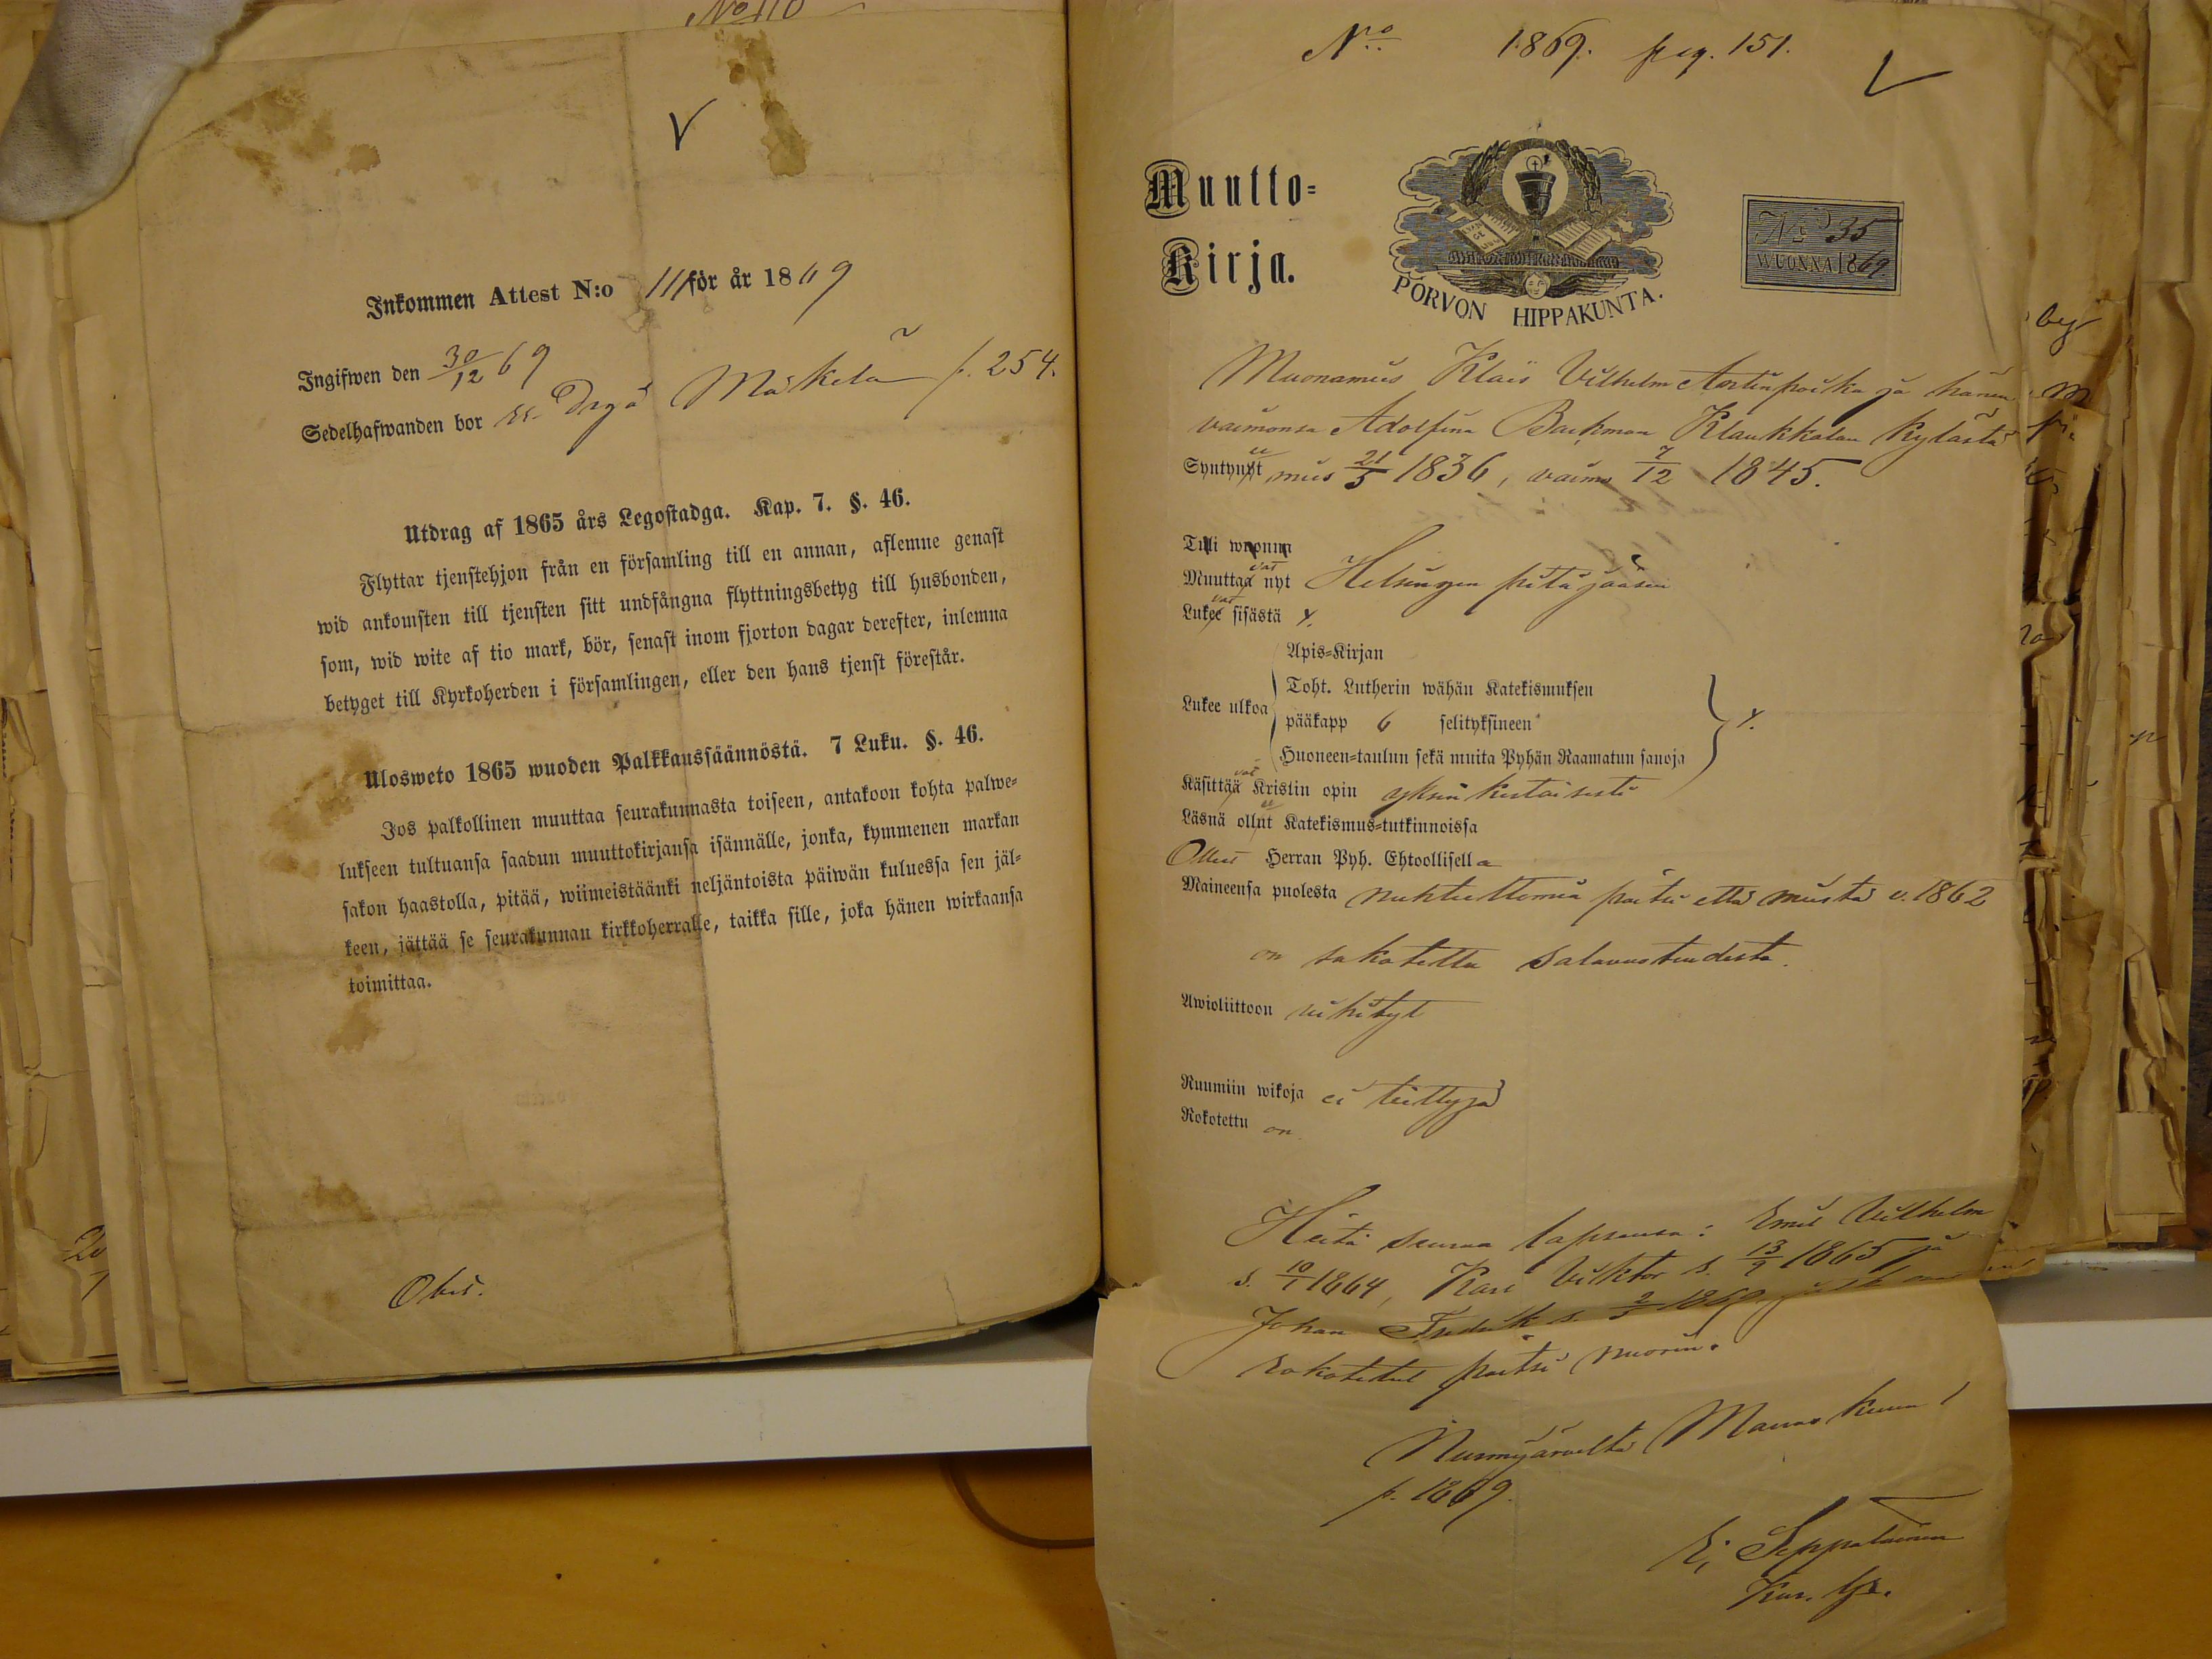 No 110
V
Inkommen Attest N:o 111 för år 1869
Ingifwen den 30/12 69
Sedelhafwanden bor Mäkelä p. 254.
Utdrag af 1865 års Legostadga. Kap. 7. §. 46.
Flyttar tjenstehjon från en församling till en annan, aflemne genast
wid ankomsten till tjensten sitt undfångna flyttningsbetyg till husbonden,
som, wid wite af tio mark, bör, senast inom fjorton dagar derefter, inlemna
betyget till Kyrkoherden i församlingen, eller den hans tjenst förestår.
Ulosweto 1865 wuoden Palkkaussäännöstä. 7 Luku. §. 46.
Jos palkollinen muuttaa seurakunnasta toiseen, antakoon kohta palwe-
lukseen tultuansa saadun muuttokirjansa isännälle, jonka, kymmenen markan
sakon haastolla, pitää, wiimeistäänki neljäntoista päiwän kuluessa sen jäl-
keen, jättää se seurakunnan kirkkoherralle, taikka sille, joka hänen wirkaansa
toimittaa.
Obs.
No 1869. pag. 151.
Muutto-
Kirja.
PORVON HIPPAKUNTA.
No 35
WUONNA 1869
Muonamies Klas Vilhelm Antinpoika ja hänen
vaimonsa Adolfina Backman Klaukkalan kylästä
Syntynyt, mies 21/5 1836, vaimo 7/12 1845.
Tuli wuonna
Muuttaa vat nyt Helsingen pitäjääsen
Lukee vat sisästä
Apis-Kirjan
Toht. Lutherin wähän Katekismuksen
Lukee ulkoa
pääkapp 6 selityksineen
Huoneen-taulun sekä muita Pyhän Raamatun sanoja
Käsittää vat Kristin opin yksinkertaisesti
Läsnä ollut Katekismus-tutkinnoissa
Olleet Herran Pyh. Ehtoollisella
Maineensa puolesta nuhteettomia paitsi että miestä v. 1862
on sakotettu salavuoteudesta.
Awioliittoon vihityt
Ruumiin wikoja ei tiettyjä
Rokotettu on
Heitä seuraa lapsensa: Emil Vilhelm
s. 10/1 1864, Karl Viktor s. 13/9 1865 ja
Johan Fredrik s. 2/5 1869
rokotetut paitsi nuorin.
Nurmijärveltä Marraskuun 1
p. 1869.
Seppalainen